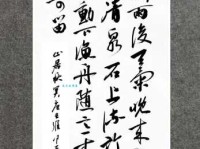 雨後天氣晚來
清泉石上流竹
動下漁舟隨意
可留
山居秋暝唐王維